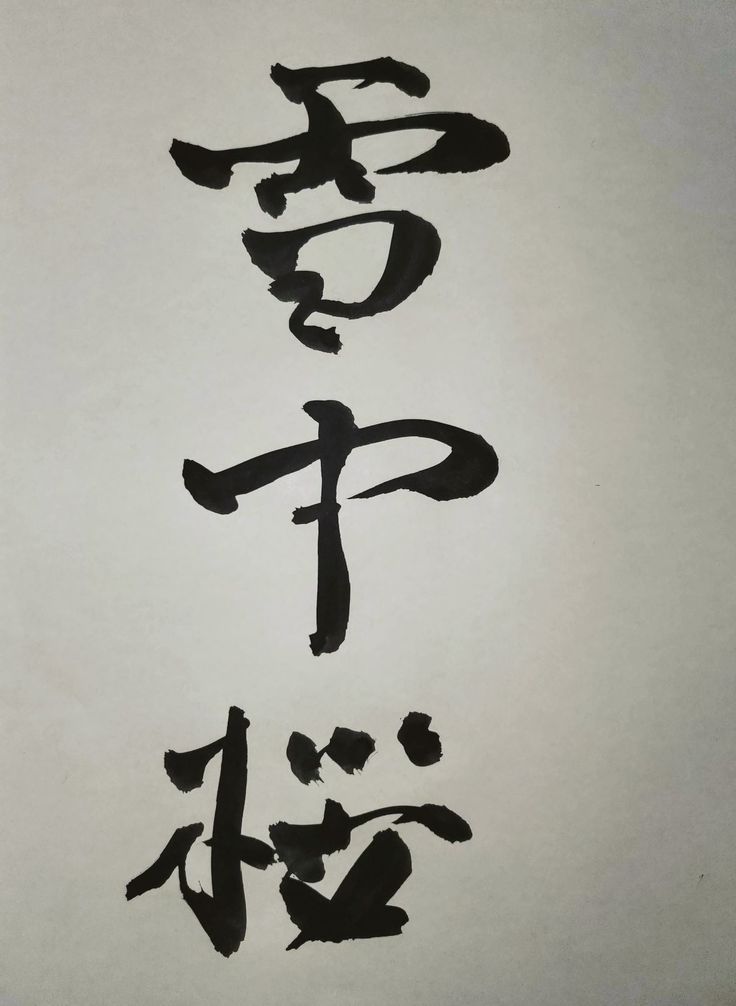 雪中桜